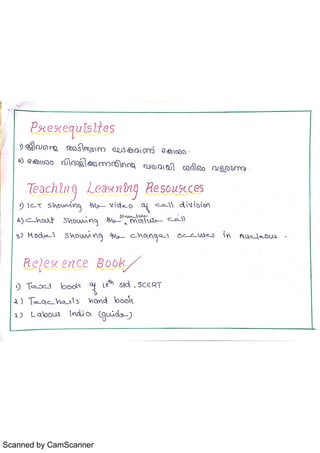 Prerequisites
1) ജീവന്റെ അടിസ്ഥാന ഘടകമാണ് കോശം.
2) കോശം വിഭജിക്കുന്നതിന്റെ ഫലമായി ശരീരം വളരുന്നു.
Teaching Learning Resources
1) ICT showing the video of cell division
2) Chart showing the structure mature cell
3) Model showing the changes occures in nucleous.
Reference Book
1) Text book of std, SCERT
2) Teachers hand book
3) Labour India (guide)
Scanned by CamScanner